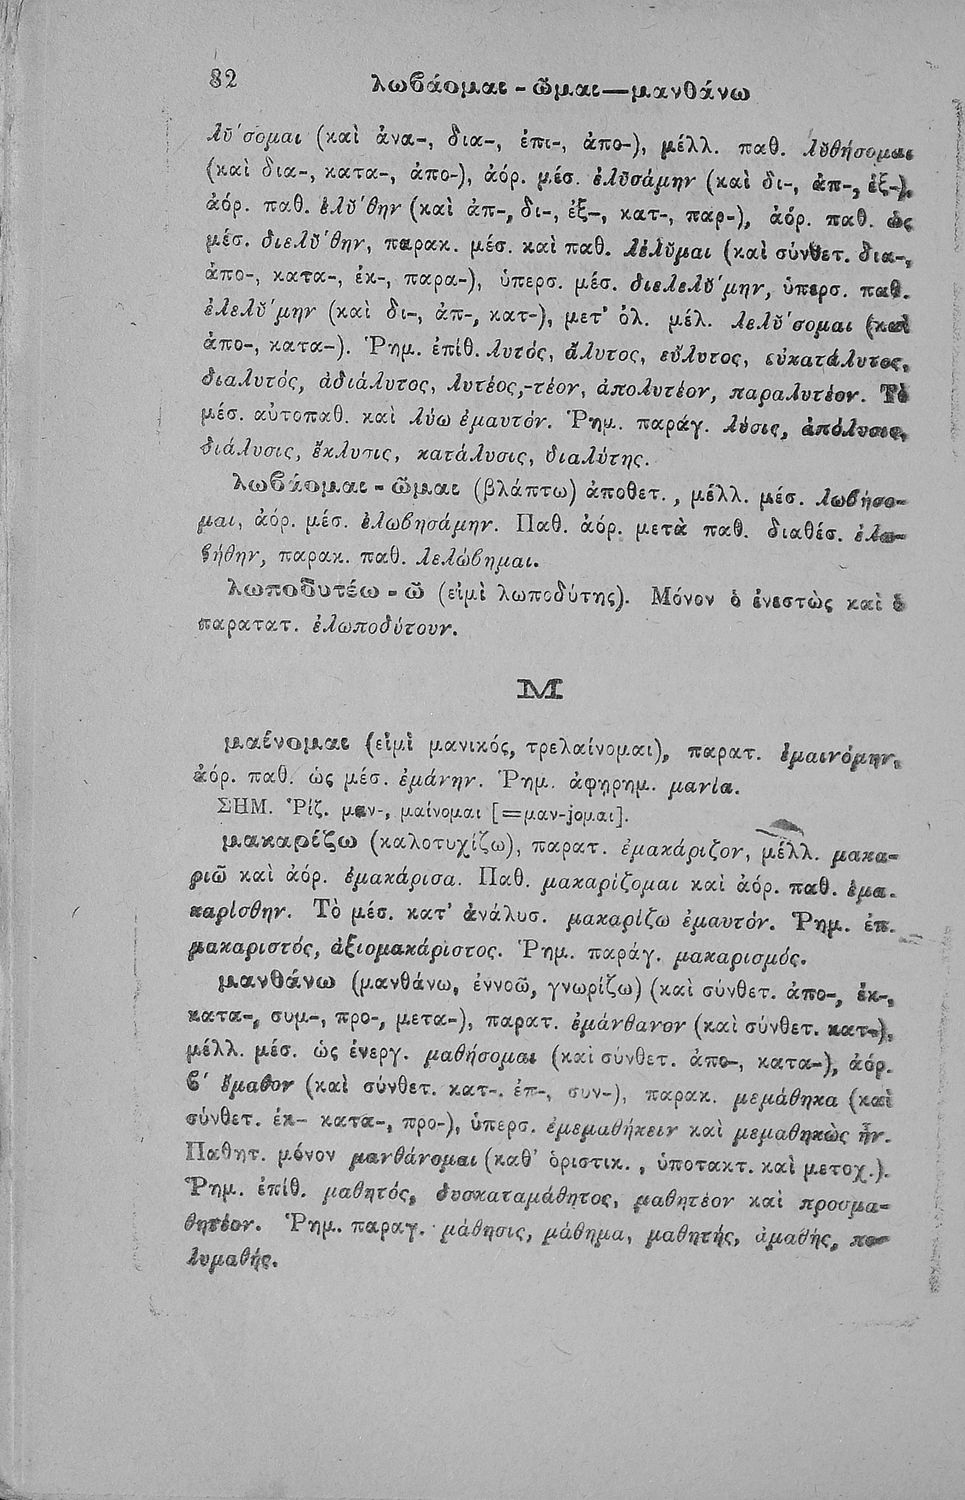 82
λωβάομαι - ῶμαι—μανθάνω
λῡ́σομαι (καὶ ἀνα-, δια-, ἐπι-, ἀπο-), μέλλ. παθ. λῠθήσομαι
(καὶ δια-, κατα-, ἀπο-), ἀόρ. μέσ. ἐλῡσάμην (καὶ δι-, ἀπ-, ἐξ-),
ἀόρ. παθ. ἐλῠ́θην (καὶ ἀπ-, δι-, ἐξ-, κατ-, παρ-), ἀόρ. παθ. ὡς
μέσ. διελῠ́θην, παρακ. μέσ. καὶ παθ. λέλῠμαι (καὶ σύνθετ. δια-,
ἀπο-, κατα-, ἐκ-, παρα-), ὑπερσ. μέσ. διελελῠ́μην, ὑπερσ. παθ.
ἐλελῠ́μην (καὶ δι-, ἀπ-, κατ-), μετ' ὀλ. μέλ. λελῡ́σομαι (καὶ
ἀπο-, κατα-). Ῥημ. ἐπίθ. λυτός, ἄλυτος, εὔλυτος, εὐκατάλυτος,
διαλυτός, ἀδιάλυτος, λυτέος,-τέον, ἀπολυτέον, παραλυτέον. Τὸ
μέσ. αὐτοπαθ. καὶ λύω ἐμαυτόν. Ῥημ. παράγ. λύσις, ἀπόλυσις,
διάλυσις, ἔκλυσις, κατάλυσις, διαλύτης.
λωβάομαι - ῶμαι (βλάπτω) ἀποθετ., μέλλ. μέσ. λωβήσο-
μαι, ἀόρ. μέσ. ἐλωβησάμην. Παθ. ἀόρ. μετὰ παθ. διαθέσ. ἐλω-
βήθην, παρακ. παθ. λελώβημαι.
λωποδυτέω - ῶ (εἰμὶ λωποδύτης). Μόνον ὁ ἐνεστὼς καὶ ὁ
παρατατ. ἐλωποδύτουν.
Μ
μαίνομαι (εἰμὶ μανικός, τρελαίνομαι), παρατ. ἐμαινόμην,
ἀόρ. παθ. ὡς μέσ. ἐμάνην. Ῥημ. ἀφηρημ. μανία.
ΣΗΜ. Ῥίζ. μαν-, μαίνομαι [=μαν-jομαι].
μακαρίζω (καλοτυχίζω), παρατ. ἐμακάριζον, μέλλ. μακα-
ριῶ καὶ ἀόρ. ἐμακάρισα. Παθ. μακαρίζομαι καὶ ἀόρ. παθ. ἐμα-
καρίσθην. Τὸ μέσ. κατ' ἀνάλυσ. μακαρίζω ἐμαυτόν. Ῥημ. ἐπ.
μακαριστός, ἀξιομακάριστος. Ῥημ. παράγ. μακαρισμός.
μανθάνω (μανθάνω, ἐννοῶ, γνωρίζω) (καὶ σύνθετ. ἀπο-, ἐκ-,
κατα-, συμ-, προ-, μετα-), παρατ. ἐμάνθανον (καὶ σύνθετ. κατ-),
μέλλ. μέσ. ὡς ἐνεργ. μαθήσομαι (καὶ σύνθετ. ἀπο-, κατα-), ἀόρ.
β' ἔμαθον (καὶ σύνθετ. κατ-. ἐπ-, συν-), παρακ. μεμάθηκα (καὶ
σύνθετ. ἐκ- κατα-, προ-), ὑπερσ. ἐμεμαθήκειν καὶ μεμαθηκὼς ἦν.
Παθητ. μόνον μανθάνομαι (καθ' ὁριστικ., ὑποτακτ. καὶ μετοχ.).
Ῥημ. ἐπίθ. μαθητός, δυσκαταμάθητος, μαθητέον καὶ προσμα-
θητέον. Ῥημ. παραγ. μάθησις, μάθημα, μαθητής, ἀμαθής, πο-
λυμαθής.